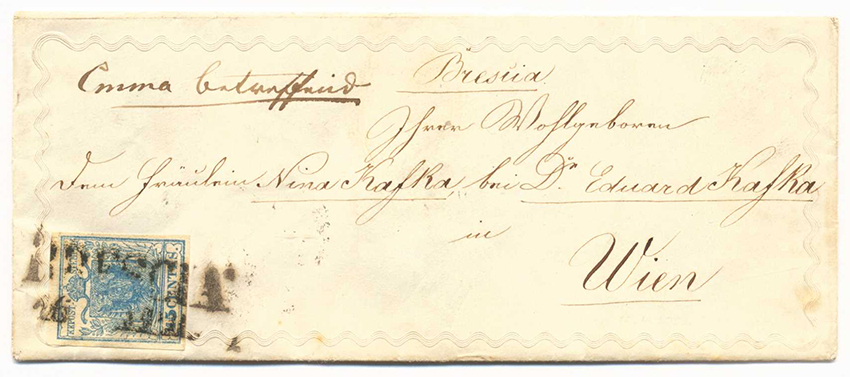 Emma betreffend
Brescia
Ihrer Wohlgeboren
Dem Fräulein Nina Kafka, bei Dr Eduard Kafka
in
Wien
BRESCIA
26
CENTES